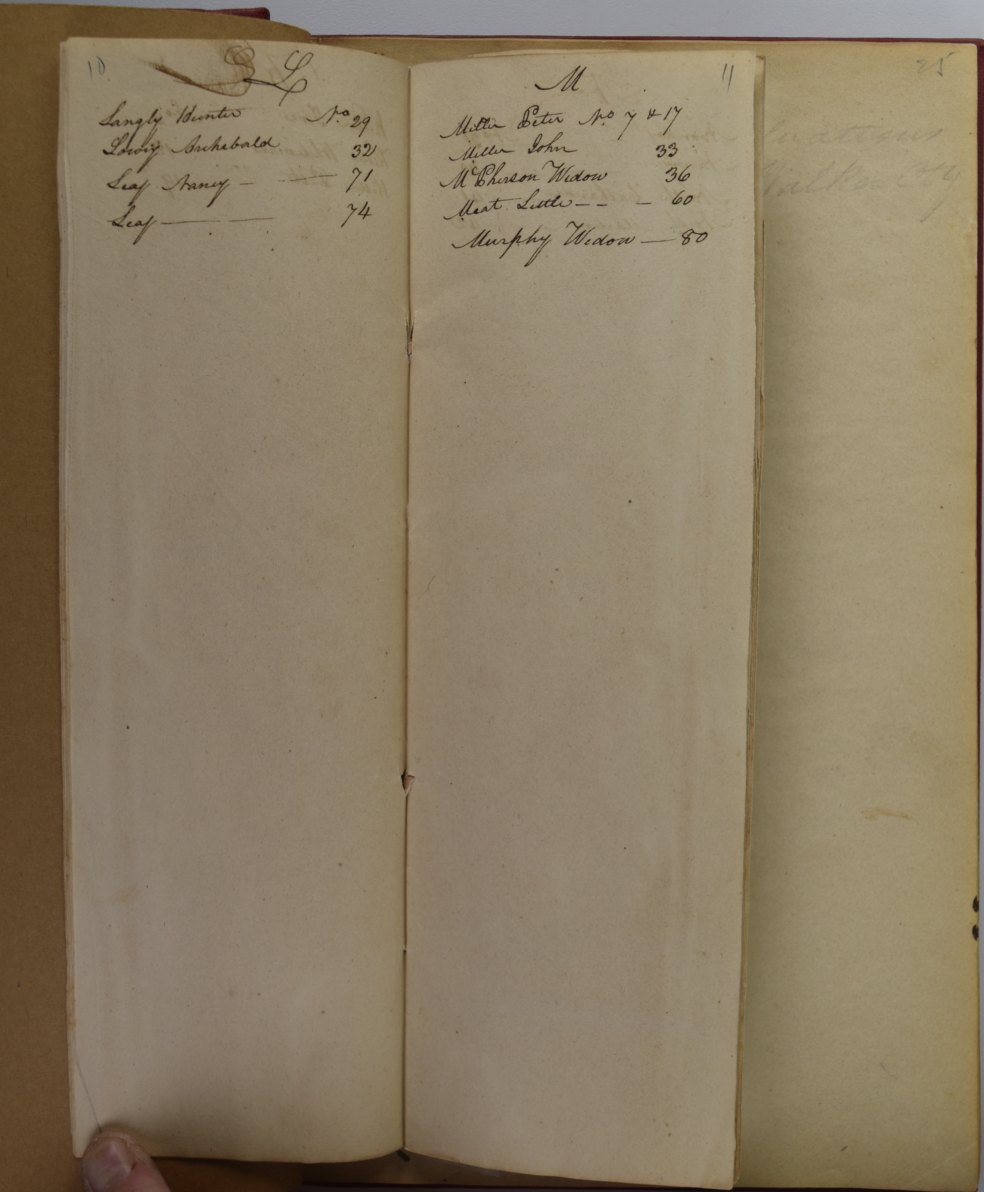 10
L
Langly Hunter No 29
Lowry Archebald 32
Leaf Nancy — — 71
Leaf — — 74
11
M
Miller Peter No 7 & 17
Miller John 33
McPherson Widow 36
Meat Little — — — 60
Murphy Widow — 80
25